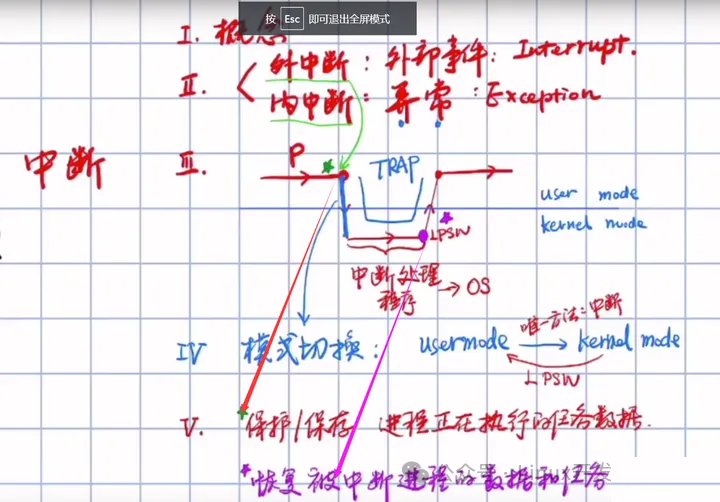 按 Esc 即可退出全屏模式
I. 概念
II. 外中断: 外部事件: Interrupt.
内中断: 异常: Exception
中断 III. P TRAP
user mode
kernel mode
LPSW
中断处理
程序 → OS
唯一方法:中断
IV 模式切换: usermode → kernel mode
LPSW
V. 保护/保存 进程正在执行的任务数据.
*恢复被中断进程的数据和任务